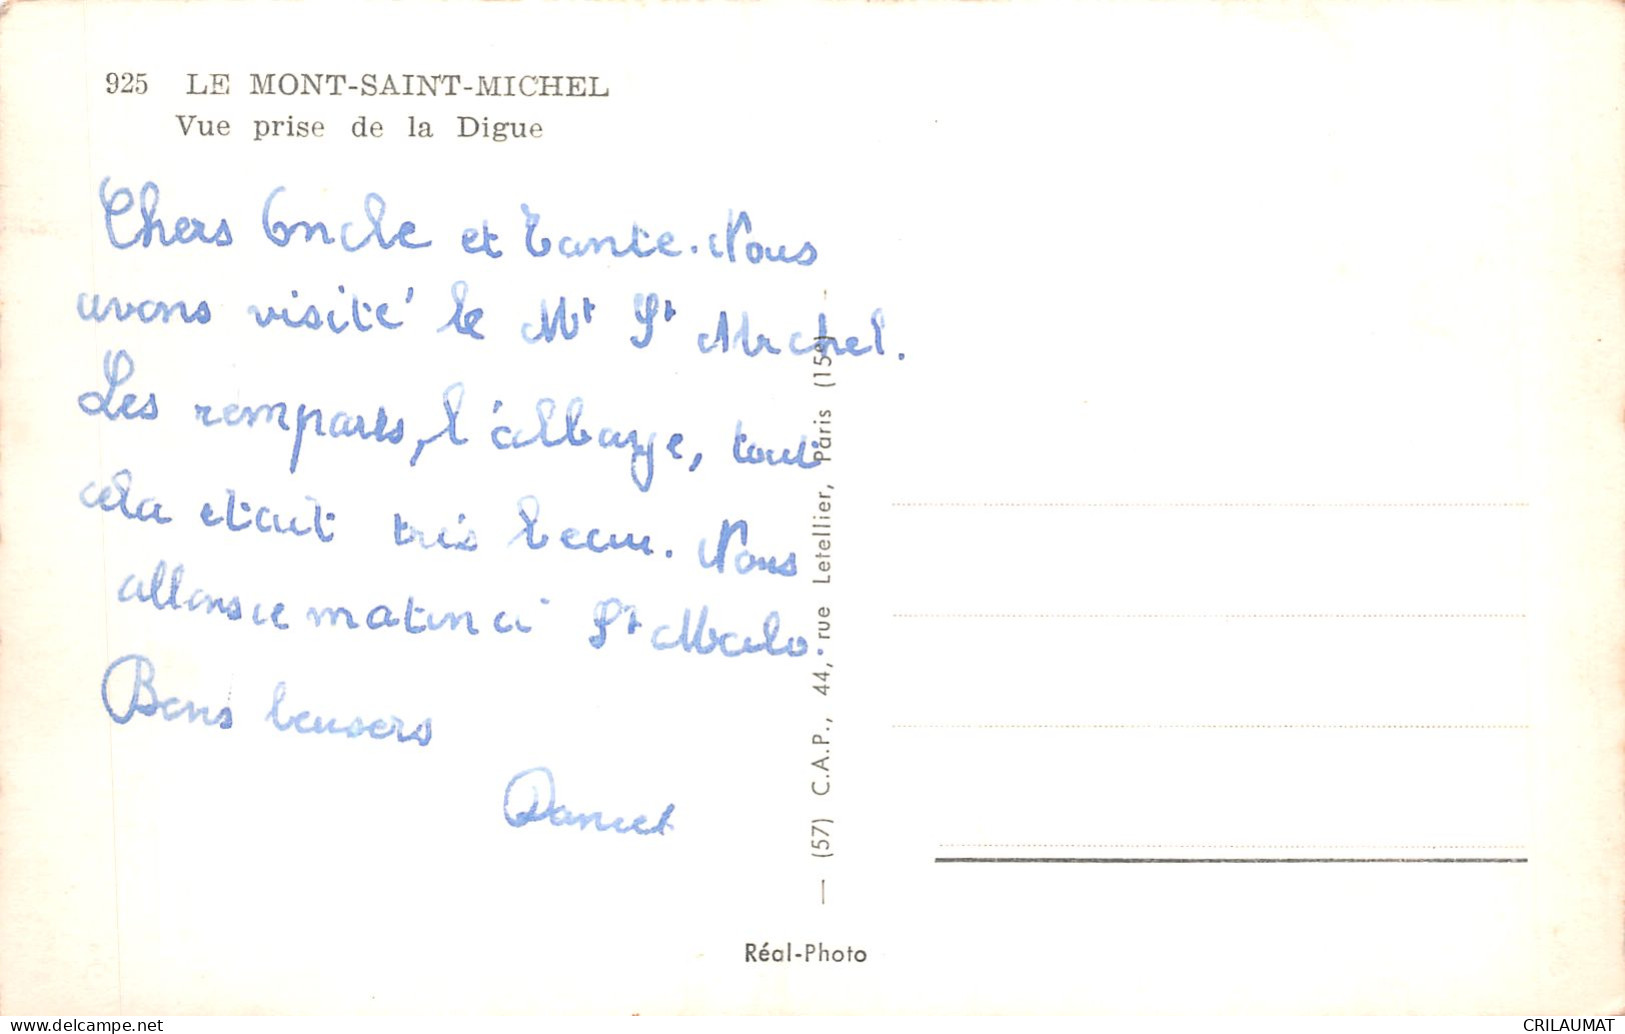 925 LE MONT-SAINT-MICHEL
Vue prise de la Digue
Chers Oncle et Tante. Nous
avons visité le Mt St Michel.
Les remparts, l'abbaye, tout
cela etait très beau. Nous
allons ce matin a St Malo.
Bons baisers
Daniel
— (57) C.A.P., 44, rue Letellier, Paris
Réal-Photo
www.delcampe.net
CRILAUMAT